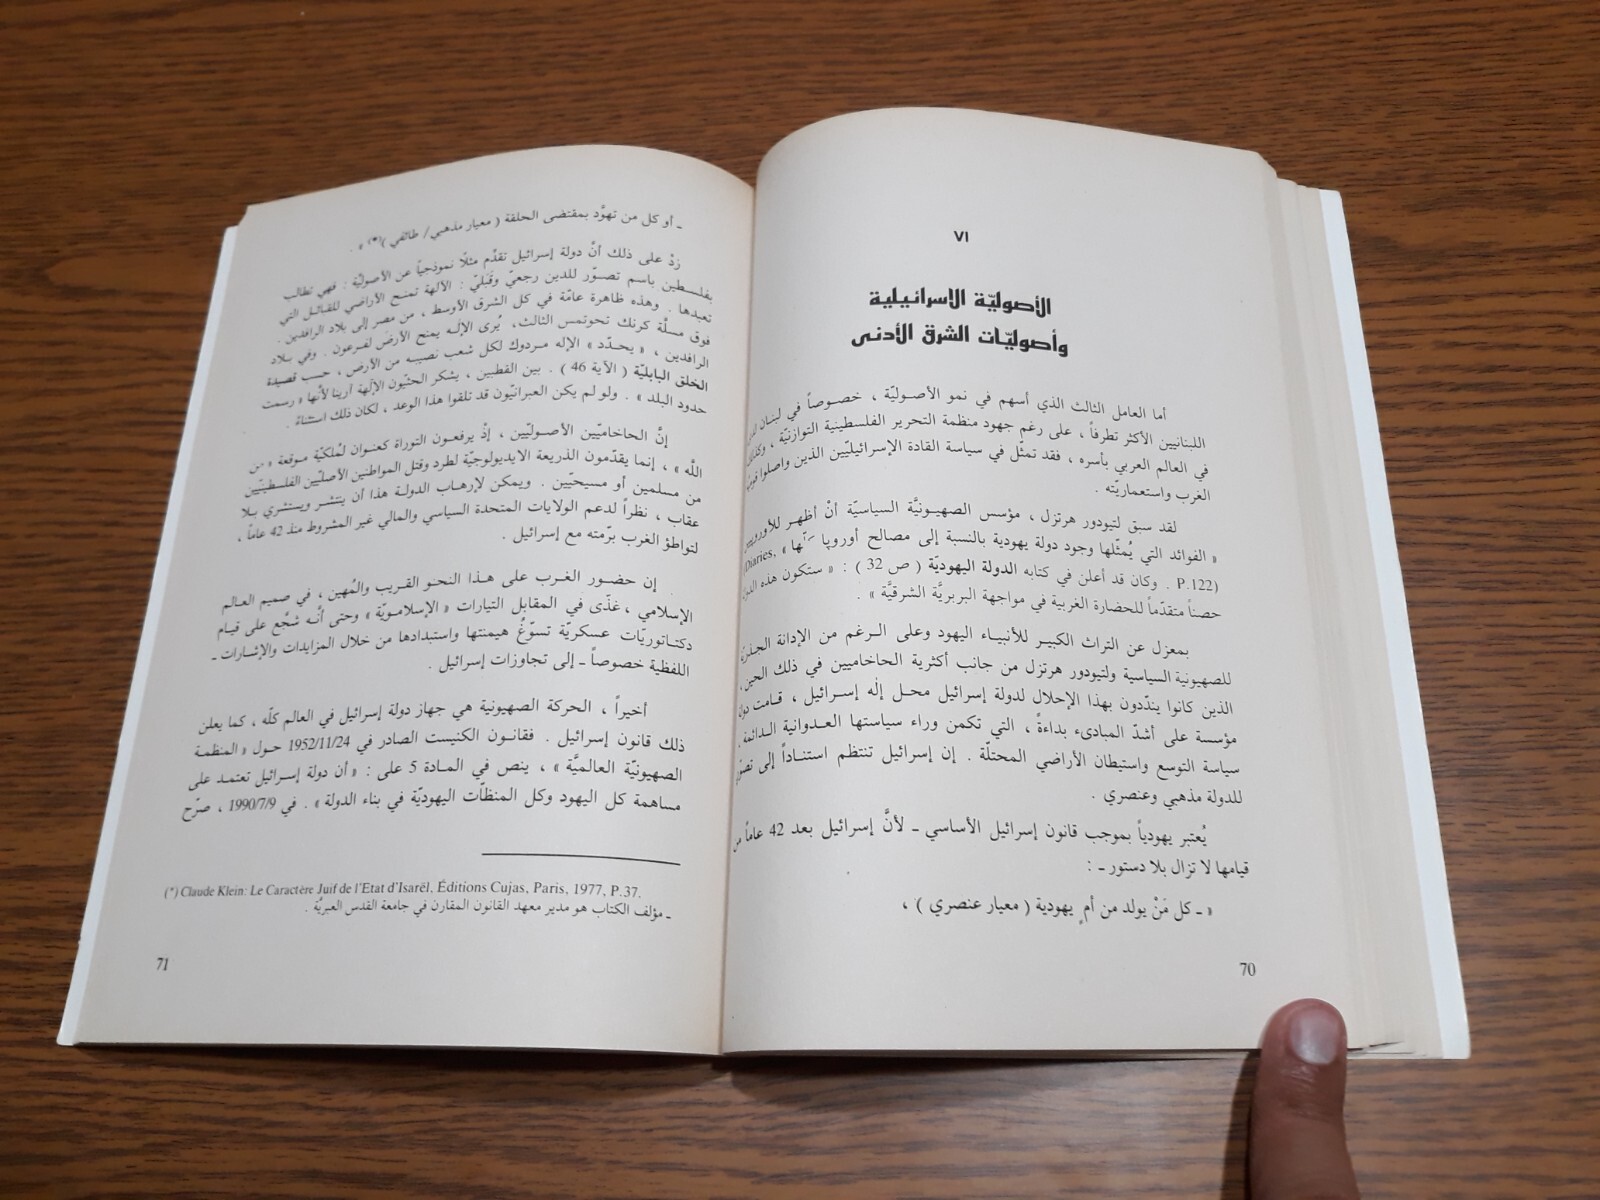 VI
الأصوليّة الاسرائيلية
وأصوليّات الشرق الأدنى
أما العامل الثالث الذي أسهم في نمو الأصوليّة ، خصوصاً في لبنان
اللبنانيين الأكثر تطرفاً ، على رغم جهود منظمة التحرير الفلسطينية التوازنيّة ،
في العالم العربي بأسره ، فقد تمثّل في سياسة القادة الإسرائيليّين الذين واصلوا
الغرب واستعماريّته .
لقد سبق لتيودور هرتزل ، مؤسس الصهيونيَّة السياسيّة أنْ أظهر
« الفوائد التي يُمثّلها وجود دولة يهودية بالنسبة إلى مصالح أوروپا » (Diaries,
P.122) . وكان قد أعلن في كتابه الدولة اليهوديّة ( ص 32 ) : « ستكون هذه
حصناً متقدّماً للحضارة الغربية في مواجهة البربريَّة الشرقيَّة » .
بمعزل عن التراث الكبير للأنبياء اليهود وعلى الرغم من الإدانة
للصهيونية السياسية ولتيودور هرتزل من جانب أكثرية الحاخاميين في ذلك الحين،
الذين كانوا يندّدون بهذا الإحلال لدولة إسرائيل محل إلٰه إسرائيل ، قامت دولة
مؤسسة على أشدّ المبادىء بداءةً ، التي تكمن وراء سياستها العدوانية الدائمة ،
سياسة التوسع واستيطان الأراضي المحتلّة . إن إسرائيل تنتظم استناداً إلى تصوّر
للدولة مذهبي وعنصري .
يُعتبر يهودياً بموجب قانون إسرائيل الأساسي ـ لأنَّ إسرائيل بعد 42 عاماً من
قيامها لا تزال بلا دستور ـ :
« ـ كل مَنْ يولد من أمٍ يهودية ( معيار عنصري ) ،
70
ـ أو كل من تهوَّد بمقتضى الحلقة ( معيار مذهبي / طائفي )(*) » .
زدْ على ذلك أنَّ دولة إسرائيل تقدِّم مثلًا نموذجياً عن الأصوليَّة : فهي تطالب
بفلسطين باسم تصوّر للدين رجعيّ وقَبَليّ : الآلهة تمنح الأراضي للقبائل التي
تعبدها . وهذه ظاهرة عامّة في كل الشرق الأوسط ، من مصر إلى بلاد الرافدين .
فوق مسلَّة كرنك تحوتمس الثالث، يُرى الإلٰه يمنح الأرضَ لفرعون . وفي بلاد
الرافدين ، « يحدّد » الإله مردوك لكل شعب نصيبه من الأرض ، حسب قصيدة
الخلق البابليّة ( الآية 46 ) . بين القطبين ، يشكر الحثيّون الإلٰهة أرينا لأنَّها « رسمت
حدود البلد » . ولو لم يكن العبرانيّون قد تلقوا هذا الوعد ، لكان ذلك استثناءً .
إنَّ الحاخاميّين الأصوليّين ، إذْ يرفعون التوراة كعنوان لمُلكيّة موقعة « من
اللَّه » ، إنما يقدّمون الذريعة الايديولوجيّة لطرد وقتل المواطنين الأصليّين الفلسطينيّين
من مسلمين أو مسيحيّين . ويمكن لإرهاب الدولة هذا أن ينتشر ويستشري بلا
عقاب ، نظراً لدعم الولايات المتحدة السياسي والمالي غير المشروط منذ 42 عاماً ،
لتواطؤ الغرب برمّته مع إسرائيل .
إن حضور الغرب على هذا النحو القريب والمُهين ، في صميم العالم
الإسلامي ، غذّى في المقابل التيارات « الإسلامويّة » وحتى أنَّه شجَّع على قيام
دكتاتوريّات عسكريّة تسوّغُ هيمنتها واستبدادها من خلال المزايدات والإشارات ـ
اللفظية خصوصاً ـ إلى تجاوزات إسرائيل .
أخيراً ، الحركة الصهيونية هي جهاز دولة إسرائيل في العالم كلّه ، كما يعلن
ذلك قانون إسرائيل . فقانون الكنيست الصادر في 1952/11/24 حول « المنظمة
الصهيونيّة العالميَّة » ، ينص في المادة 5 على : « أن دولة إسرائيل تعتمد على
مساهمة كل اليهود وكل المنظمات اليهوديّة في بناء الدولة » . في 1990/7/9 ، صرّح
(*) Claude Klein: Le Caractère Juif de l'Etat d'Isarël, Éditions Cujas, Paris, 1977, P.37.
ـ مؤلف الكتاب هو مدير معهد القانون المقارن في جامعة القدس العبريَّة .
71